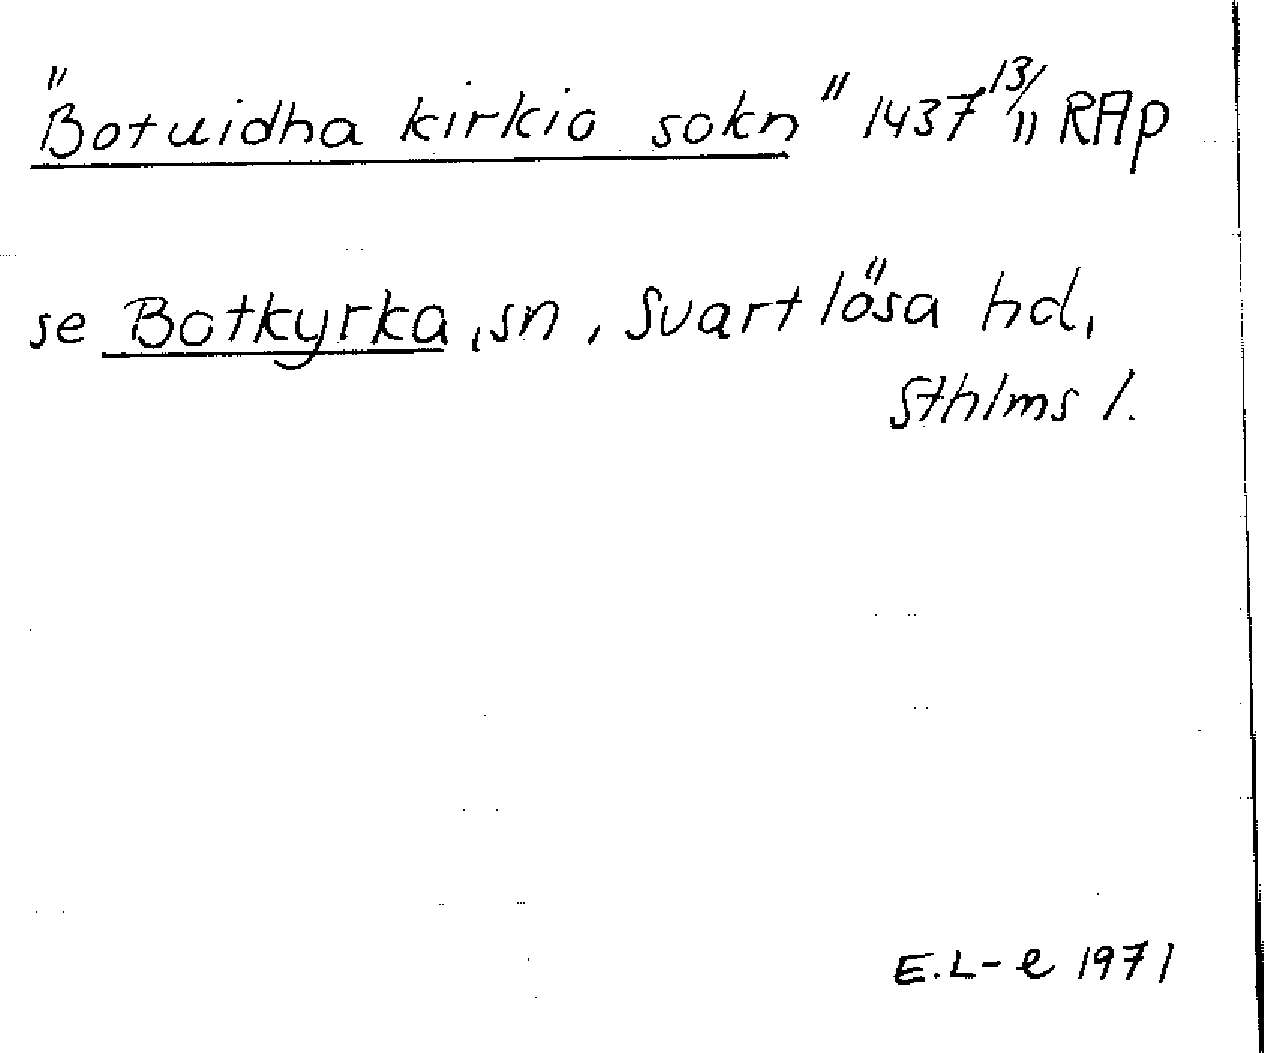 "Botuidha kirkio sokn" 1437 13/11 RAp
se Botkyrka, sn, Svartlösa hd,
Sthlms l.
E.L-e 1971